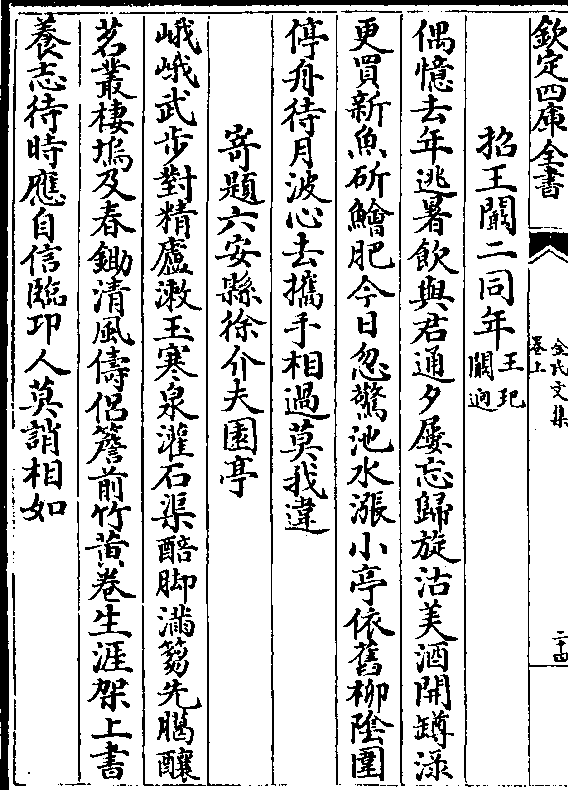 欽定四庫全書
金氏文集
卷上
二十四
招王闞二同年
王玘
闞逈
偶憶去年逃暑飲與君通夕屡忘歸旋沽美酒開罇渌
更買新魚斫鱠肥今日忽驚池水漲小亭依舊栁隂圍
停舟待月波心去攜手相過莫我違
寄題六安縣徐介夫園亭
峨峨武步對精廬漱玉寒泉灌石渠醅脚滿蒭先臈釀
茗叢棲塢及春鋤清風儔侣簷前竹黄卷生涯架上書
養志待時應自信臨卭人莫誚相如